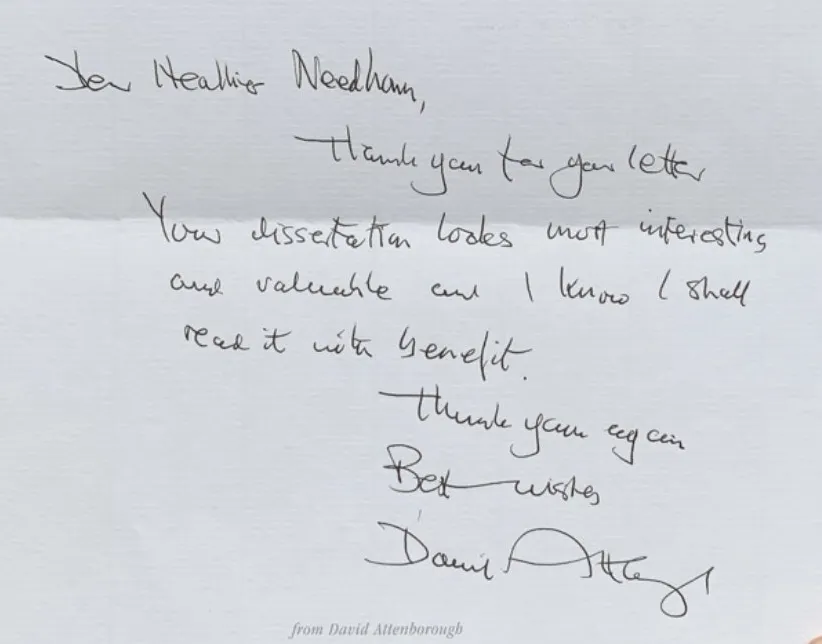 Dear Heather Needham,
Thank you for your letter
Your dissertation looks most interesting
and valuable and I know I shall
read it with benefit.
Thank you again
Best wishes
David Attenborough
from David Attenborough